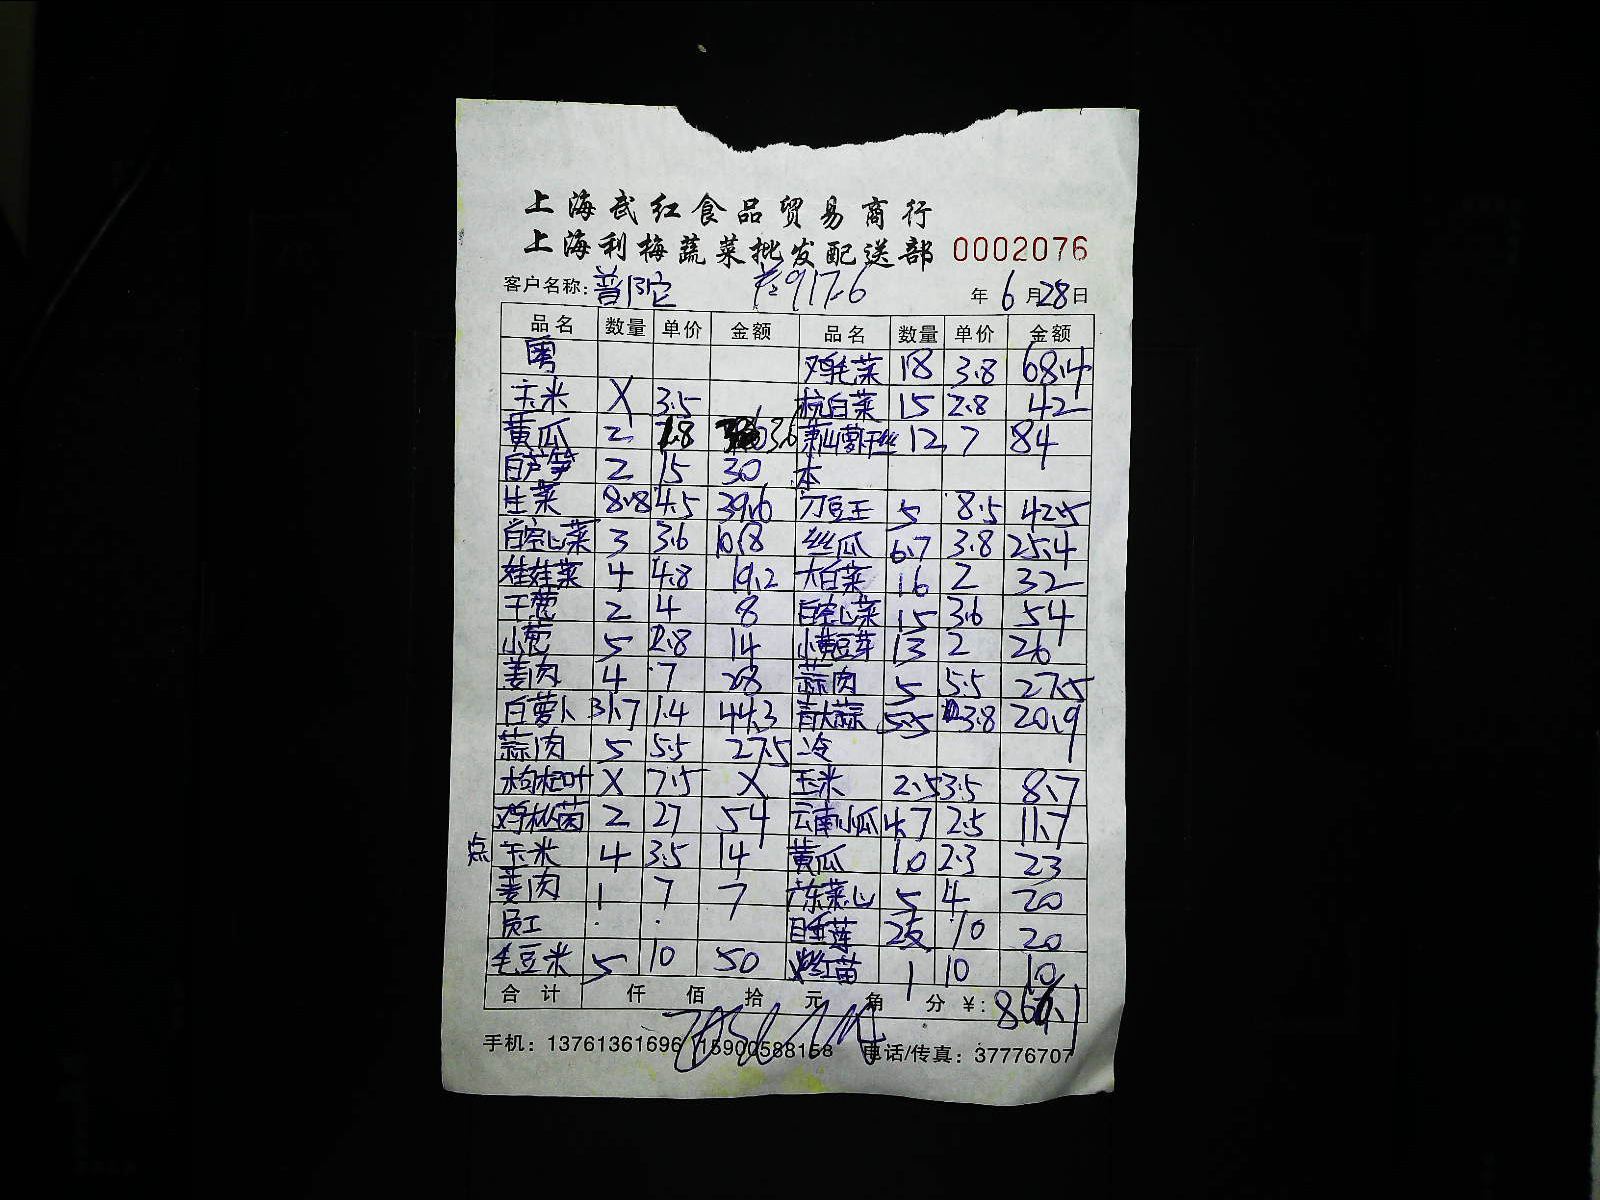 上海武红食品贸易商行
上海利梅蔬菜批发配送部 0002076
客户名称: 普陀 917.6 年 6 月 28 日
品名 数量 单价 金额 品名 数量 单价 金额
粤 鸡毛菜 18 3.8 68.4
玉米 X 3.5 杭白菜 15 2.8 42
黄瓜 2 1.8 3.6 萧山萝卜干丝 12 7 84
白芦笋 2 15 30 本
生菜 8.8 4.5 39.6 刀豆王 5 8.5 42.5
白空心菜 3 3.6 10.8 丝瓜 6.7 3.8 25.4
娃娃菜 4 4.8 19.2 大白菜 16 2 32
干葱 2 4 8 白空心菜 15 3.6 54
小葱 5 2.8 14 小黄豆芽 13 2 26
姜肉 4 7 28 蒜肉 5 5.5 27.5
白萝卜 31.7 1.4 44.3 青大蒜 5.5 3.8 20.9
蒜肉 5 5.5 27.5 冷
枸杞叶 X 7.5 X 玉米 2.5 3.5 8.7
鸡枞菌 2 27 54 云南小瓜 4.7 2.5 11.7
点 玉米 4 3.5 14 黄瓜 10 2.3 23
姜肉 1 7 7 广东菜心 5 4 20
员工 睡莲 2支 10 20
毛豆米 5 10 50 红苗 1 10 10
合计 仟 佰 拾 元 角 分 ¥:
手机: 13761361696 15900588158 电话/传真: 37776707